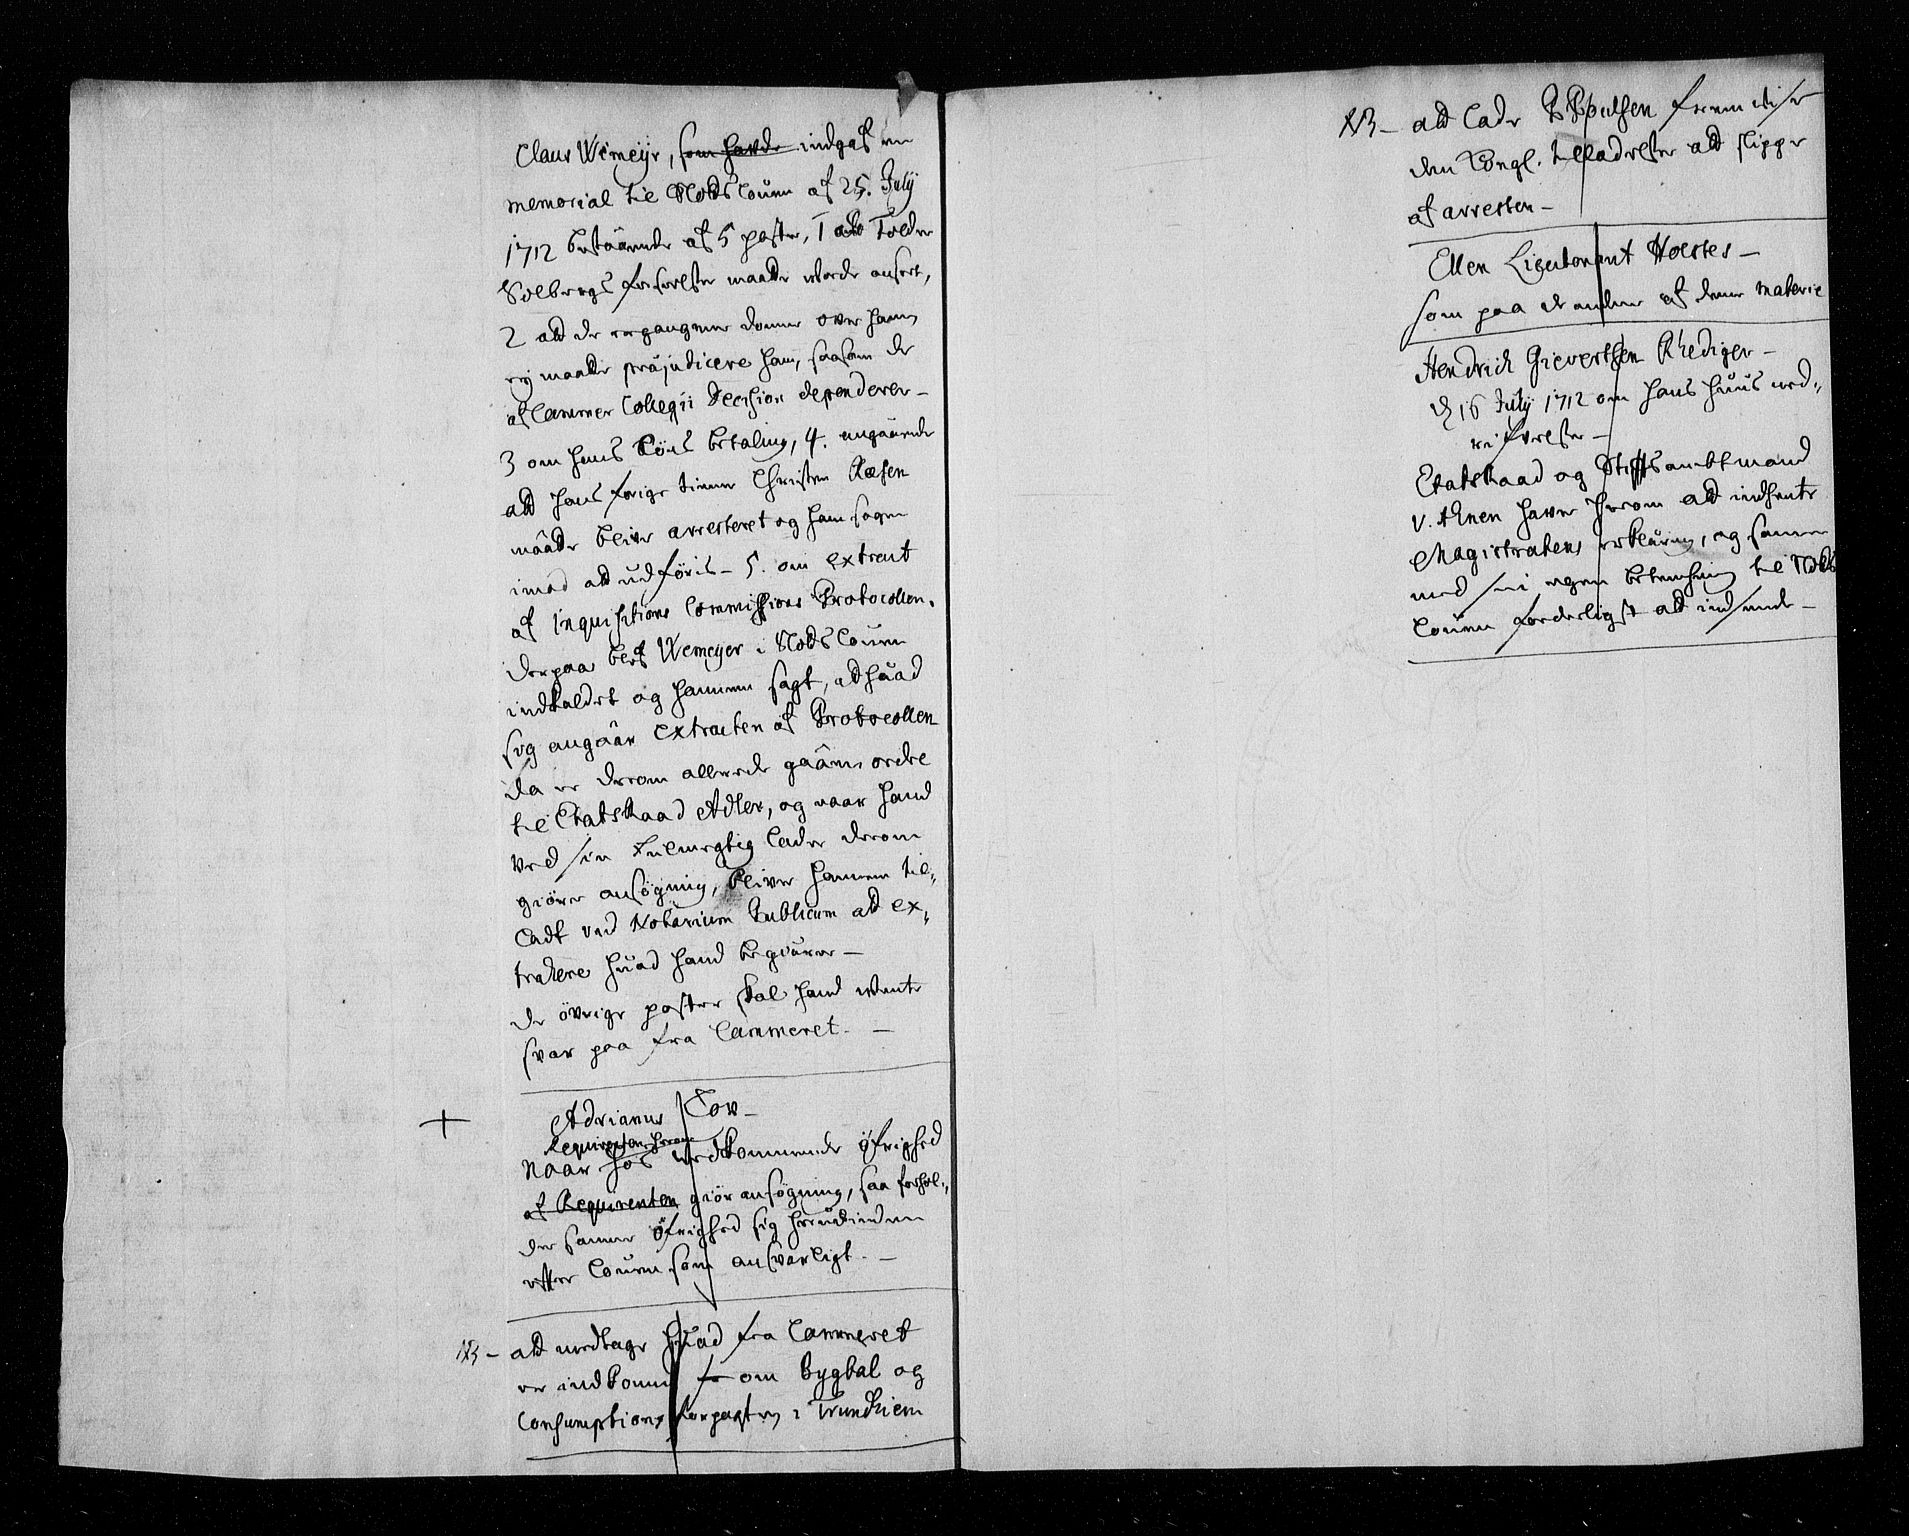 Claus Wemeÿr, som hafde indgaf en
memorial til Slodsloven af 25. July
1712 bestaaende af 5 poster, 1 att Tolder
Solbergs forseelse maatte worde anseet,
2 att de ergangene domme over ham
eÿ maatte præjudicere ham, saasom de
af Cammer Collegii Decision dependerer –
3 om hans Löns betaling, 4. angaaende
att hans forige tiener Christen Olesen
maatte blive arresteret og ham sagen
imod att udföris – 5. om extract
af Inquisitions Commissions Protocollen.
Derpaa blef Wemeyer i Slodsloven
indkaldet og hannem sagt, at huad
sig angaar extracten af Protocollen
da er derom allerede gaaen ordre
til Etatsraad Adler, og naar hand
ved sin fulmegtig lader derom
giöre ansögning, bliver hannem til-
ladt ved Notarium Publicum att ex-
trahere huad hand begiærer –
de övrige poster skal hand wente
svar paa fra Cammeret. –
Adrianus Cov –
Requirenten herom
Naar hos wedkommende Öfrighed
af Requirenten giör ansögning, saa forhol-
der samme Öfrighed sig herudinden
efter Loven som ansvarligt. –
NB – att medtage huad fra Cammeret
er indkommet om bygbal og
Consumptions forpagtn i Trundhiem
NB – att lade P Poulsen fremwise
den Kongl. tilladelse att slippe
af arresten –
Ellen Lieutenant Holstes –
som paa de andre af denne materie
Hendrich Gievertsen Rhediger –
d 16 July 1712 om hans huus ned-
rifvelse –
Etatsraad og Stiftsambtmand
v. Ahnen haver herom att indhente
Magistratens erklæring, og samme
med sin egen betenkning til Slods
Loven forderligst att indsende –